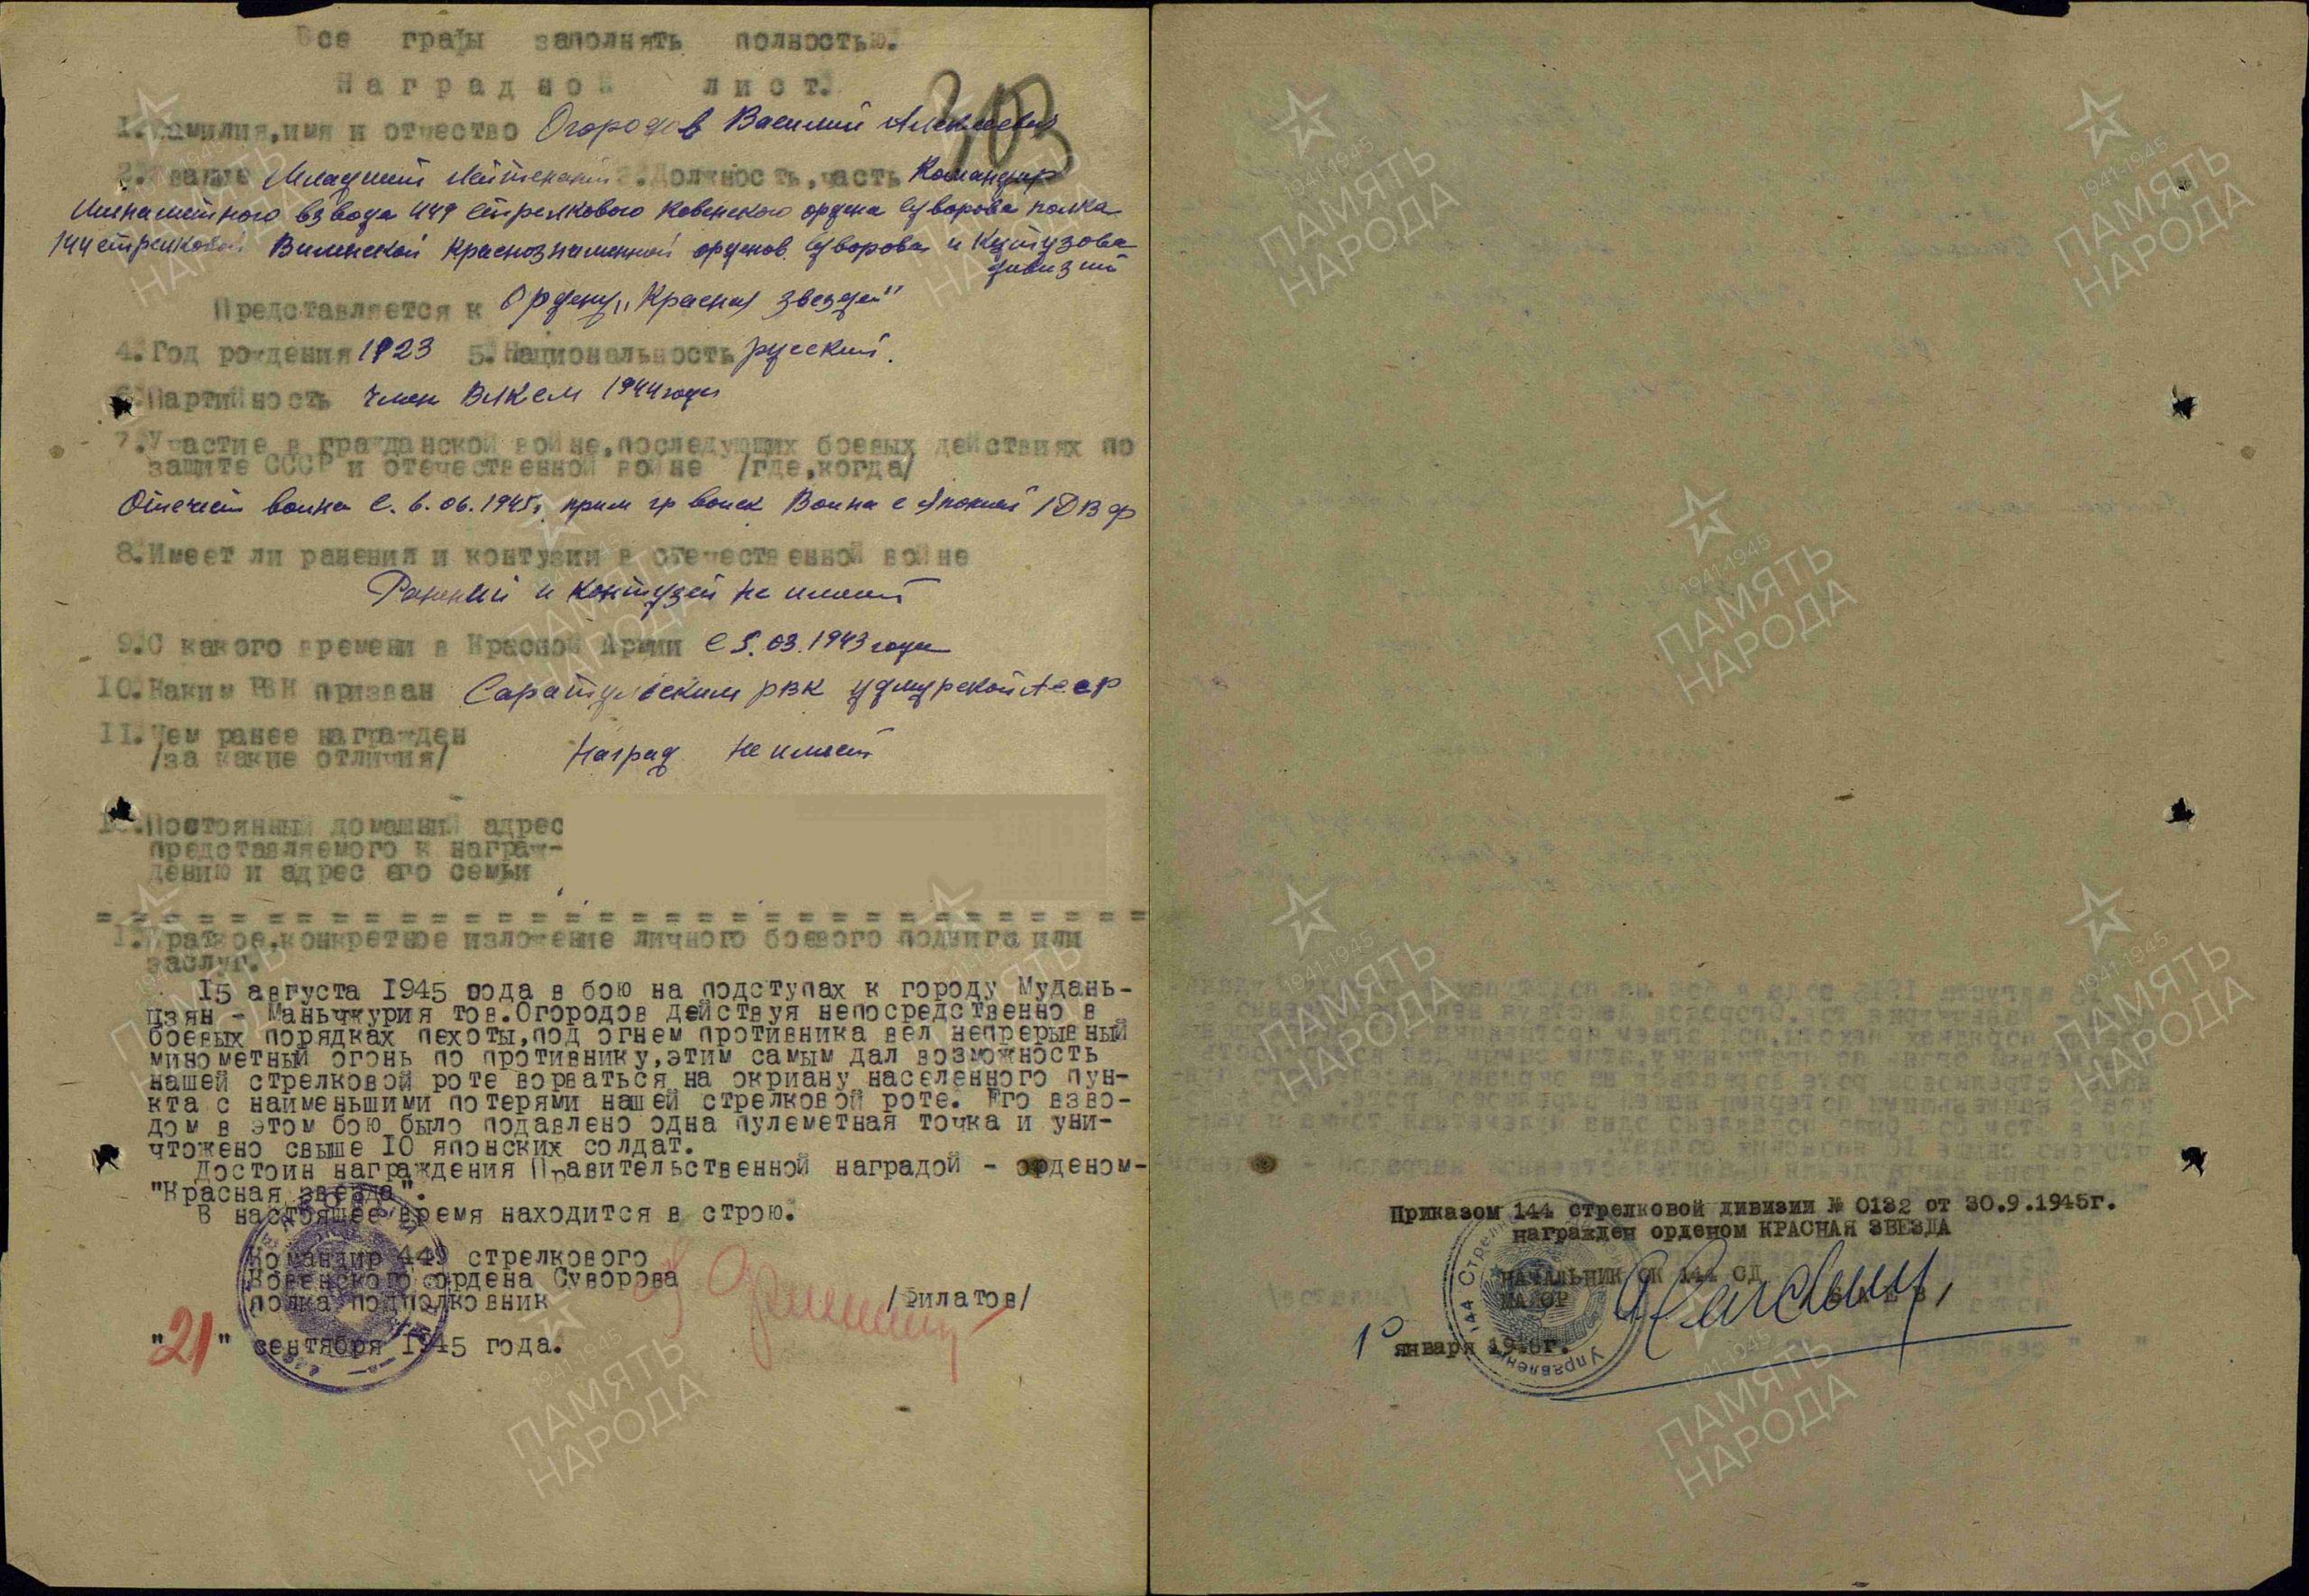 Все графы заполнять полностью.
Наградной лист.
303
1.Фамилия,имя и отчество Огородов Василий Алексеевич
2.Звание Младший лейтенант 3.Должность,часть Командир
Минометного взвода 449 стрелкового Ковенского ордена Суворова полка
144 стрелковой Виленской Краснознаменной орденов Суворова и Кутузова
дивизии
Представляется к Ордену "Красная звезда"
4.Год рождения 1923 5.Национальность русский.
6.Партийность член ВЛКСМ 1944 года
7.Участие в гражданской войне,последующих боевых действиях по
защите СССР и отечественной войне /где,когда/
Отечест война с. 6.06.1945г. прим гр войск Война с Японией 1ДВФ
8.Имеет ли ранения и контузии в отечественной войне
Ранений и контузей не имеет
9.С какого времени в Красной Армии с 5.03.1943 года
10.Каким РВК призван Сарапульским РВК Удмурской АССР
11.Чем ранее награжден
/за какие отличия/ Наград не имеет
Постоянный домашний адрес
представляемого к награж-
дению и адрес его семьи
= = = = = = = = = = = = = = = = = = = = = = = = = = = = = = = =
1.Краткое,конкретное изложение личного боевого подвига или
заслуг.
15 августа 1945 года в бою на подступах к городу Мудань-
цзян - Маньчжурия тов.Огородов действуя непосредственно в
боевых порядках пехоты,под огнем противника вел непрерывный
минометный огонь по противнику,этим самым дал возможность
нашей стрелковой роте ворваться на окриану населенного пун-
кта с наименьшими потерями нашей стрелковой роте. Его взво-
дом в этом бою было подавлено одна пулеметная точка и уни-
чтожено свыше 10 японских солдат.
Достоин награждения Правительственной наградой - орденом-
"Красная звезда".
В настоящее время находится в строю.
Командир 449 стрелкового
Ковенского ордена Суворова
полка подполковник /Филатов/
"21" сентября 1945 года.
Приказом 144 стрелковой дивизии № 0132 от 30.9.1945г.
награжден орденом КРАСНАЯ ЗВЕЗДА
НАЧАЛЬНИК ОК 144 СД
МАЙОР
января 1946г.
144 Стрелк
Управлени
1941-1945
ПАМЯТЬ
НАРОДА